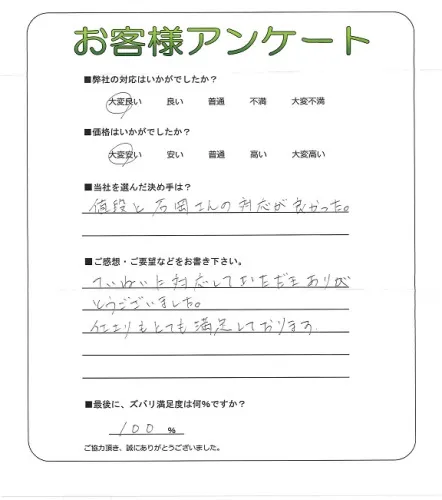 お客様アンケート
■弊社の対応はいかがでしたか?
大変良い 良い 普通 不満 大変不満
■価格はいかがでしたか?
大変安い 安い 普通 高い 大変高い
■当社を選んだ決め手は?
値段と石岡さんの対応が良かった。
■ご感想・ご要望などをお書き下さい。
ていねいに対応していただきありが
とうございました。
仕上りもとても満足しております
■最後に、ズバリ満足度は何%ですか?
100 %
ご協力頂き、誠にありがとうございました。